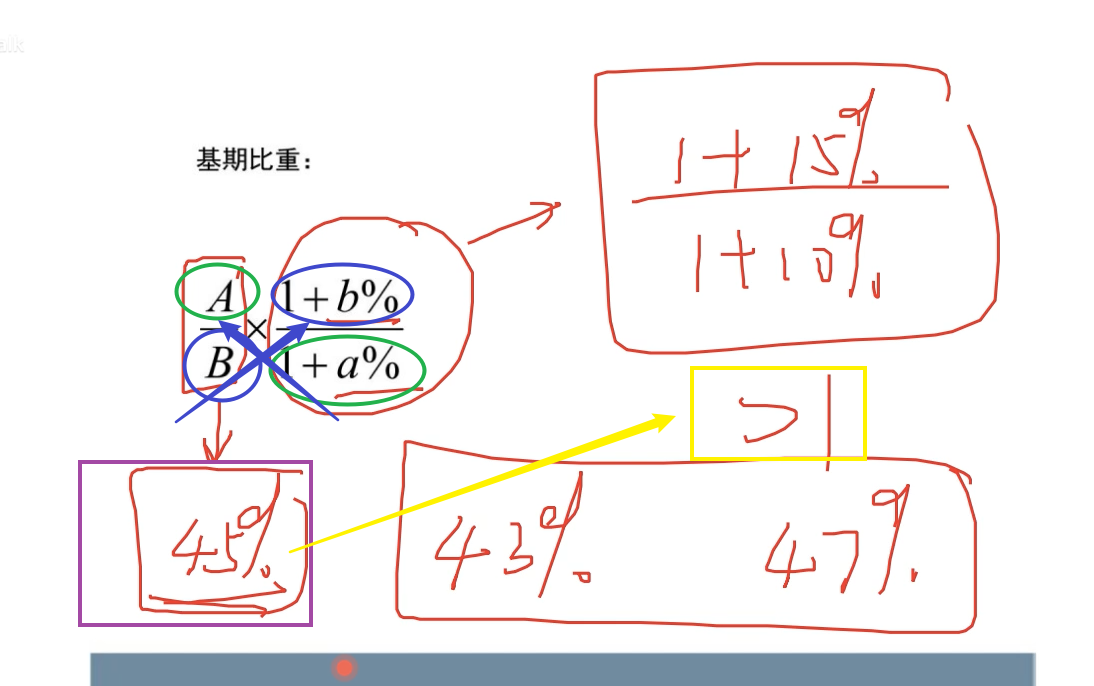 alk
基期比重：
A/B × (1+b%)/(1+a%)
1+15%
1+10%
>1
45%
43% 47%